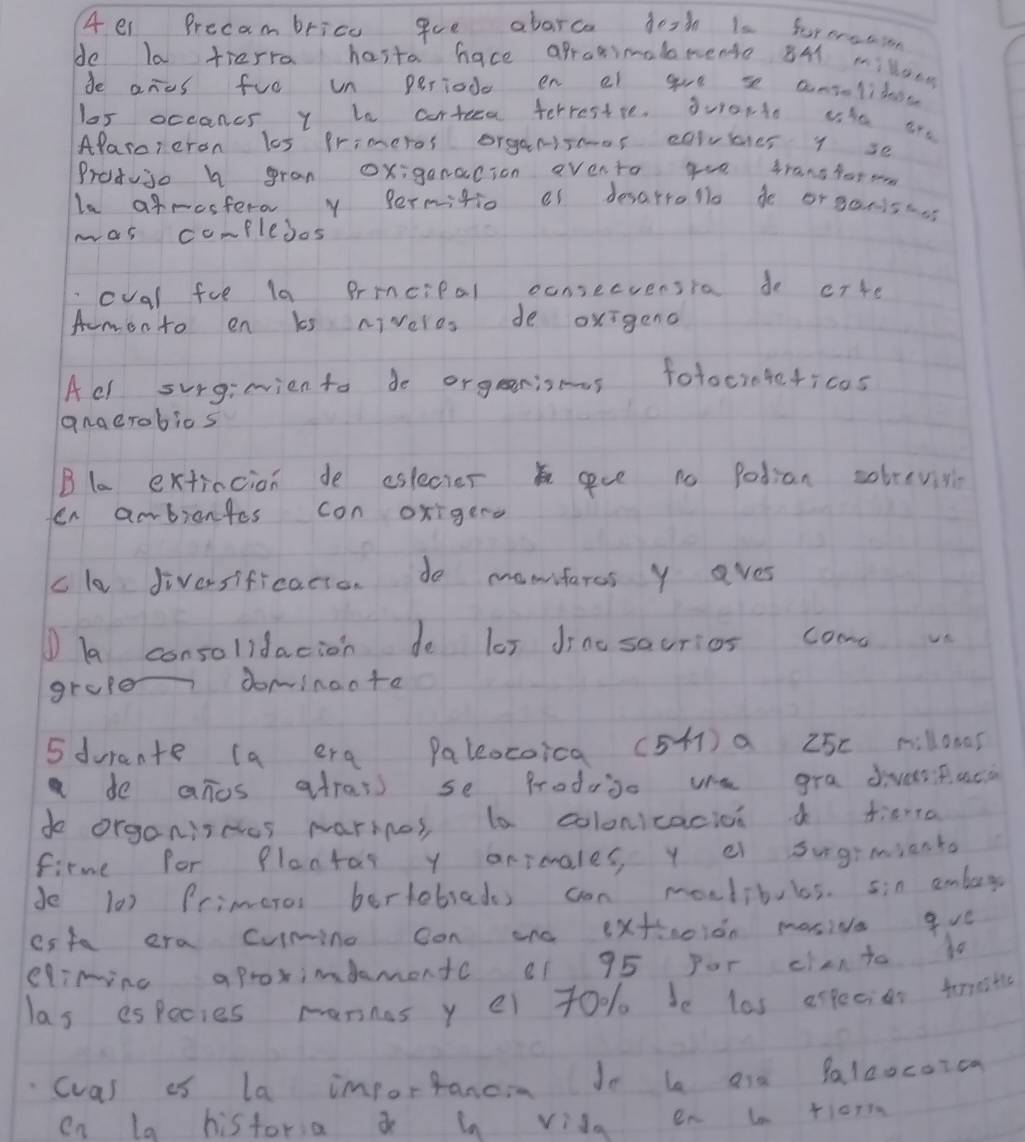 4 el Precambrico que abarca desde la formacion
de la tierra hasta hace aproximadamente 541 millones
de años fue un periodo en el que se consolidaron
los occanos y la corteca terrestre. durante esta era
Aparcieron los primeros organismos celulales y se
Produjo la gran oxiganacion evento que transformo
la atmosfera y Permitio el desarrollo de organismos
mas complejos
. cual fue la Principal consecuensia de este
Aumento en los niveles de oxigeno
A el surgimiento de organismos fotocinteticos
anaerobios
B la extincion de especies que no Podian sobrevivir
en ambientes con oxigeno
C la diversificacion de mamifaros y aves
D la consolidación de los dinosaurios como un
grupo dominante
5 durante la era Paleocoica (541) a 252 millones
de años atras) se Produjo una gra diversificacion
de organismos marinos, la colonicacion de tierra
firme Por Plantas y animales, y el surgimiento
de los Primeros bertebrados con mandibulas. sin embargo
esta era culmino con una extincion masiva que
elimino aproximdamente el 95 por ciento de
las especies marinas y el 70% de las especies terrestre
. cual es la importancia de la era Paleocoica
en la historia de la vida en la tierra